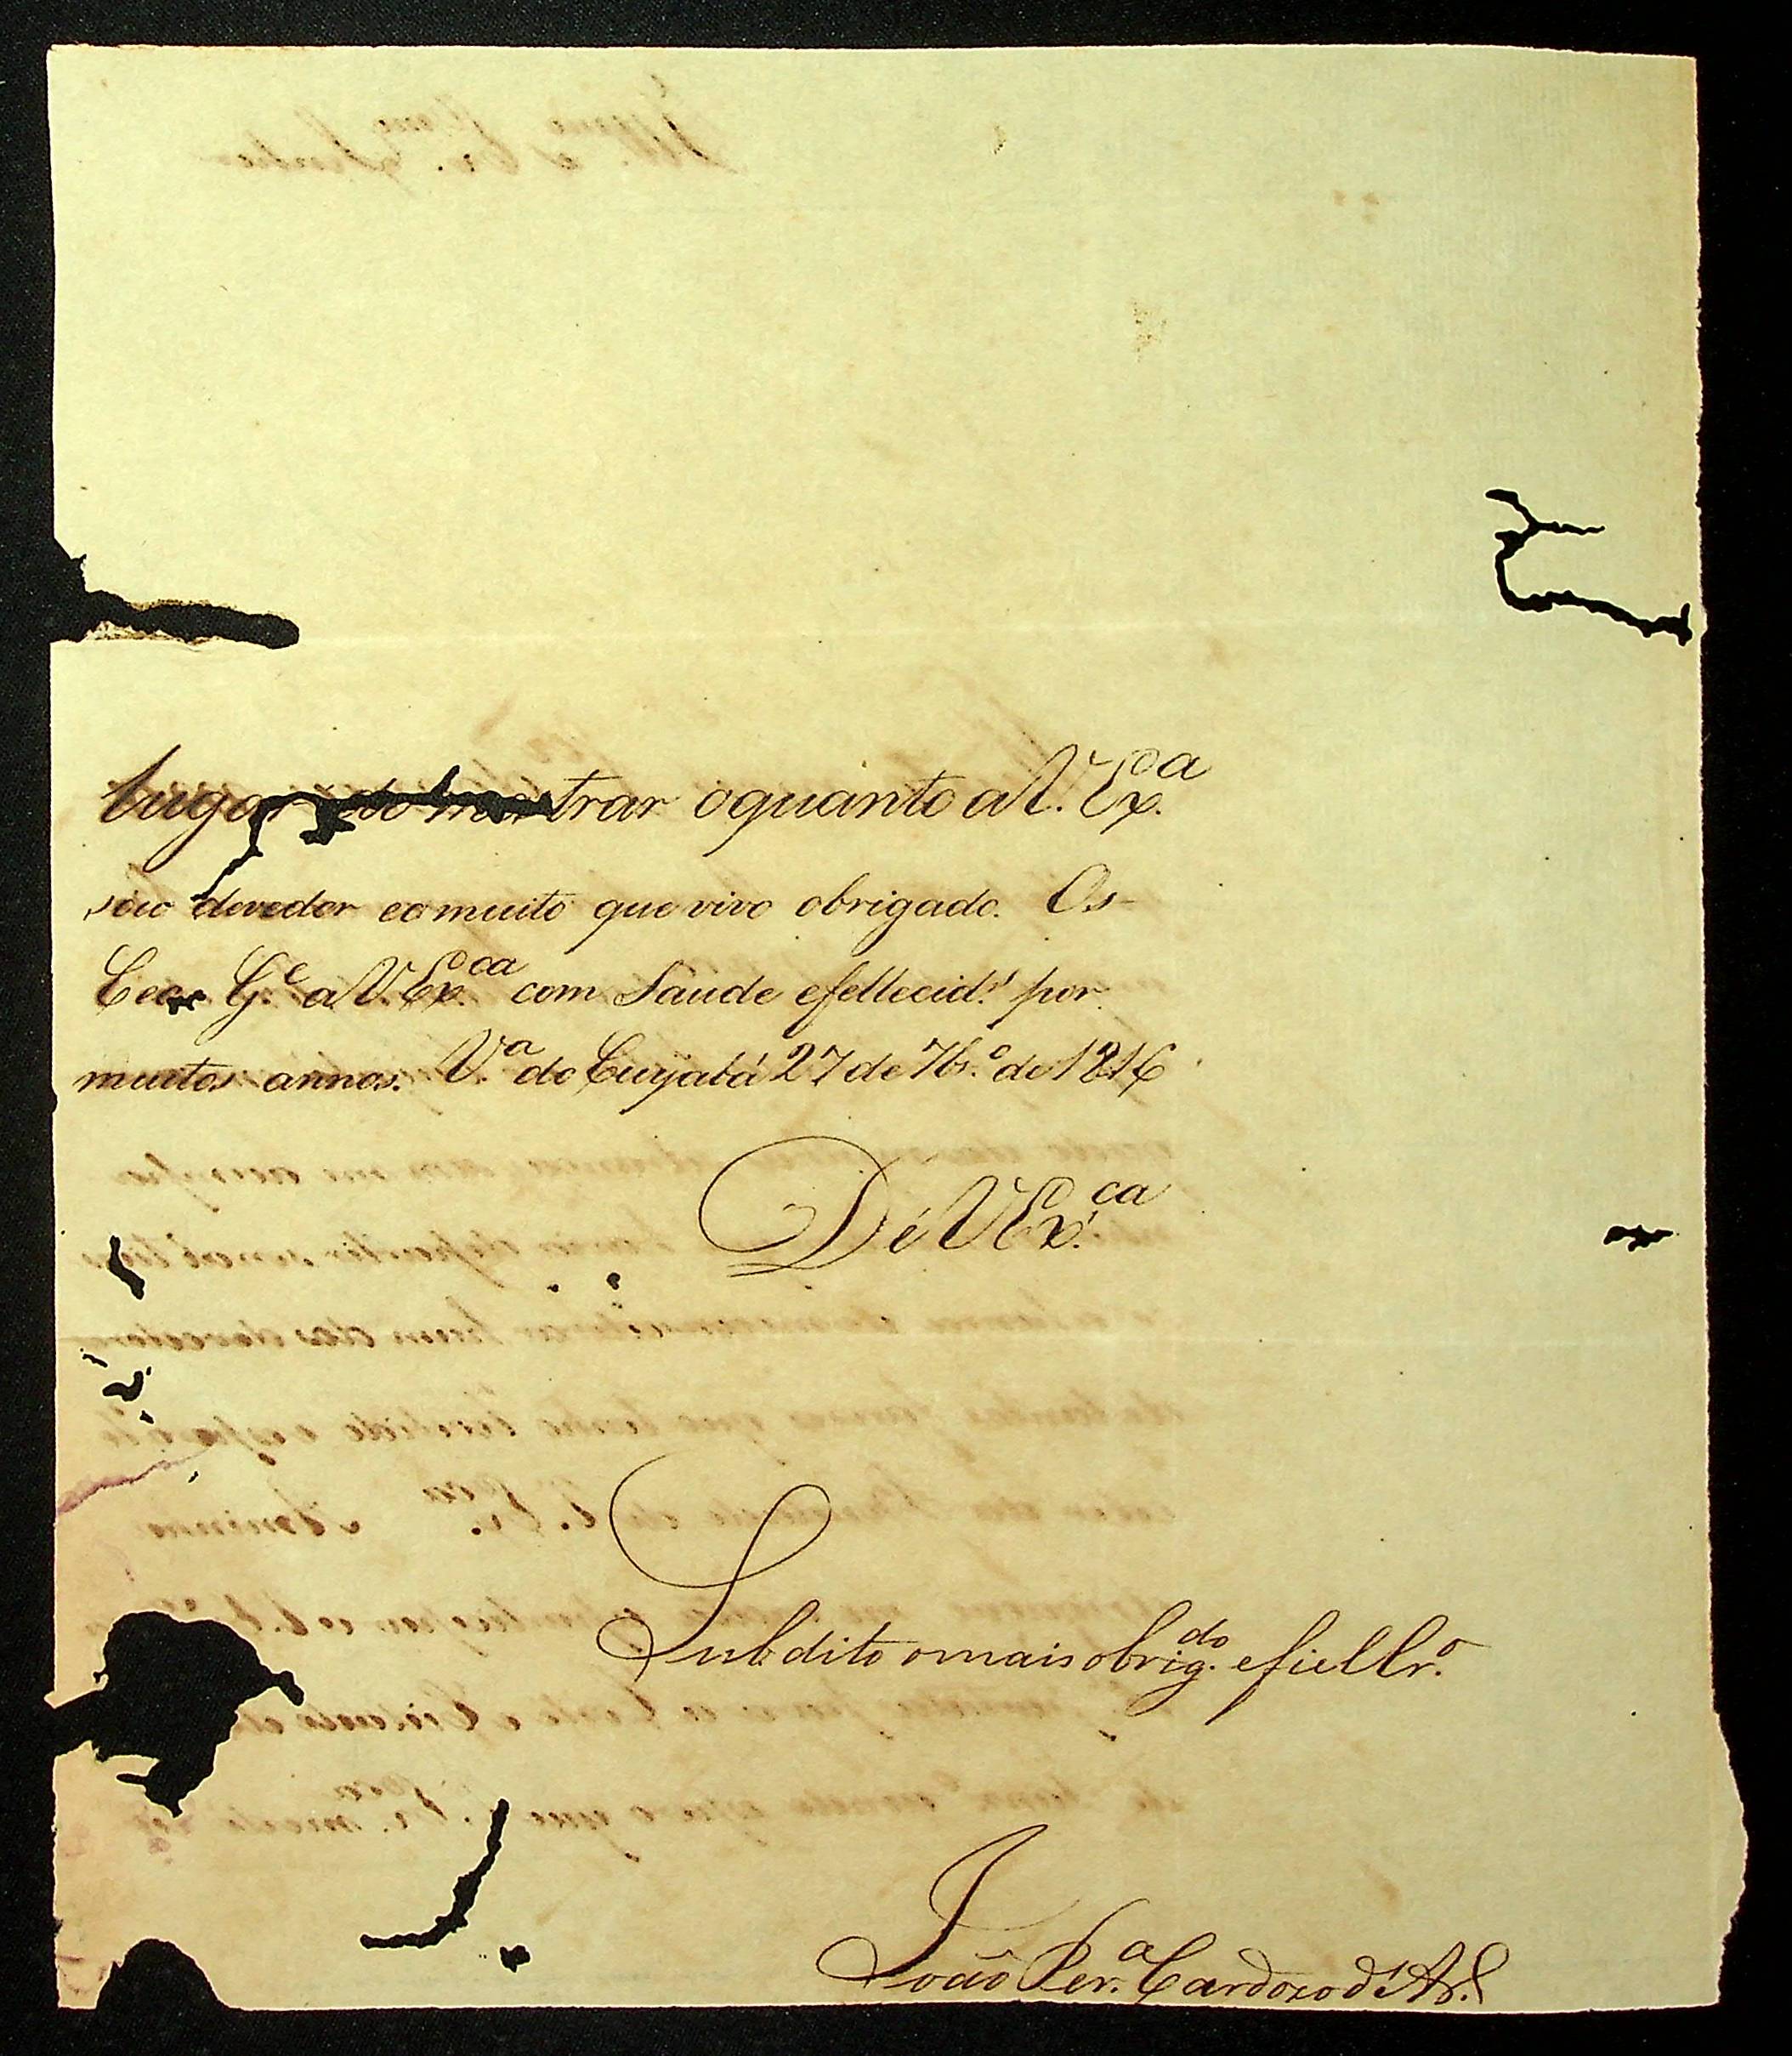 lugar de mostrar o quanto a V. Ex.ª
sou devedor eo muito que vivo obrigado. Os
Ceos G.e a V Ex.ca com Saude efellecid.e por
muitos annos. V.ª do Cuyabá 27 de 7br.º de 1816
De V Ex.ca
Subdito o mais obrig.do e fiel Cr.º
João Per.ª Cardozo d'